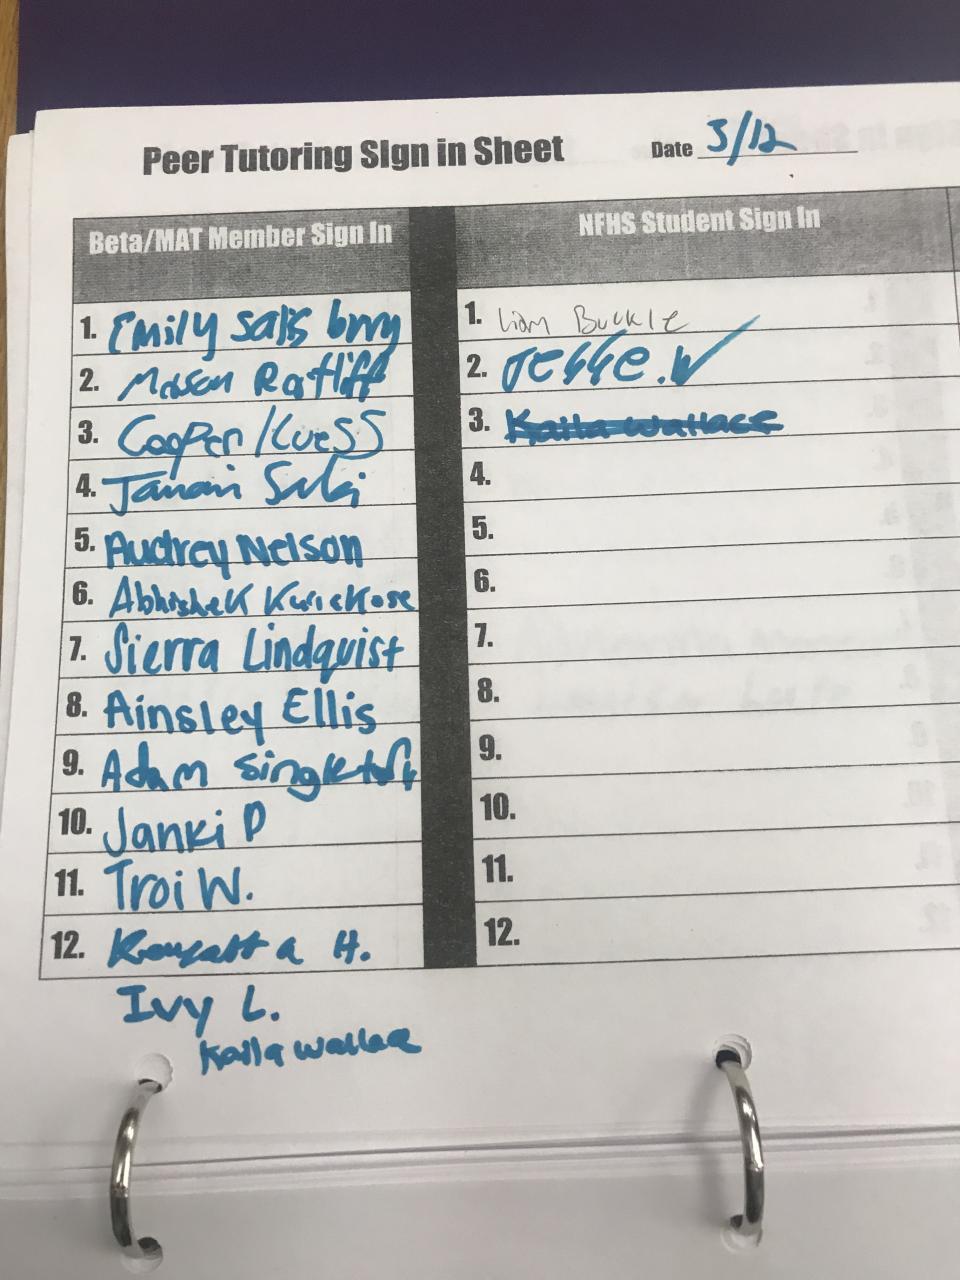 Peer Tutoring SIgn in Sheet Date 3/12
Beta/MAT Member Sign In
NFHS Student Sign In
1. Emily Salisbury
2. Mason Ratliff
3. Cooper
4.
5. Audrey Nelson
6. Abhishek Kuriekose
7. Sierra Lindquist
8. Ainsley Ellis
9. Adam Singleton
10. Janki P
11. Troi W.
12. H.
Ivy L.
Kaila Wallace
1. Liam Buckle
2. Jesse.W
3. Kaila Wallace
4.
5.
6.
7.
8.
9.
10.
11.
12.